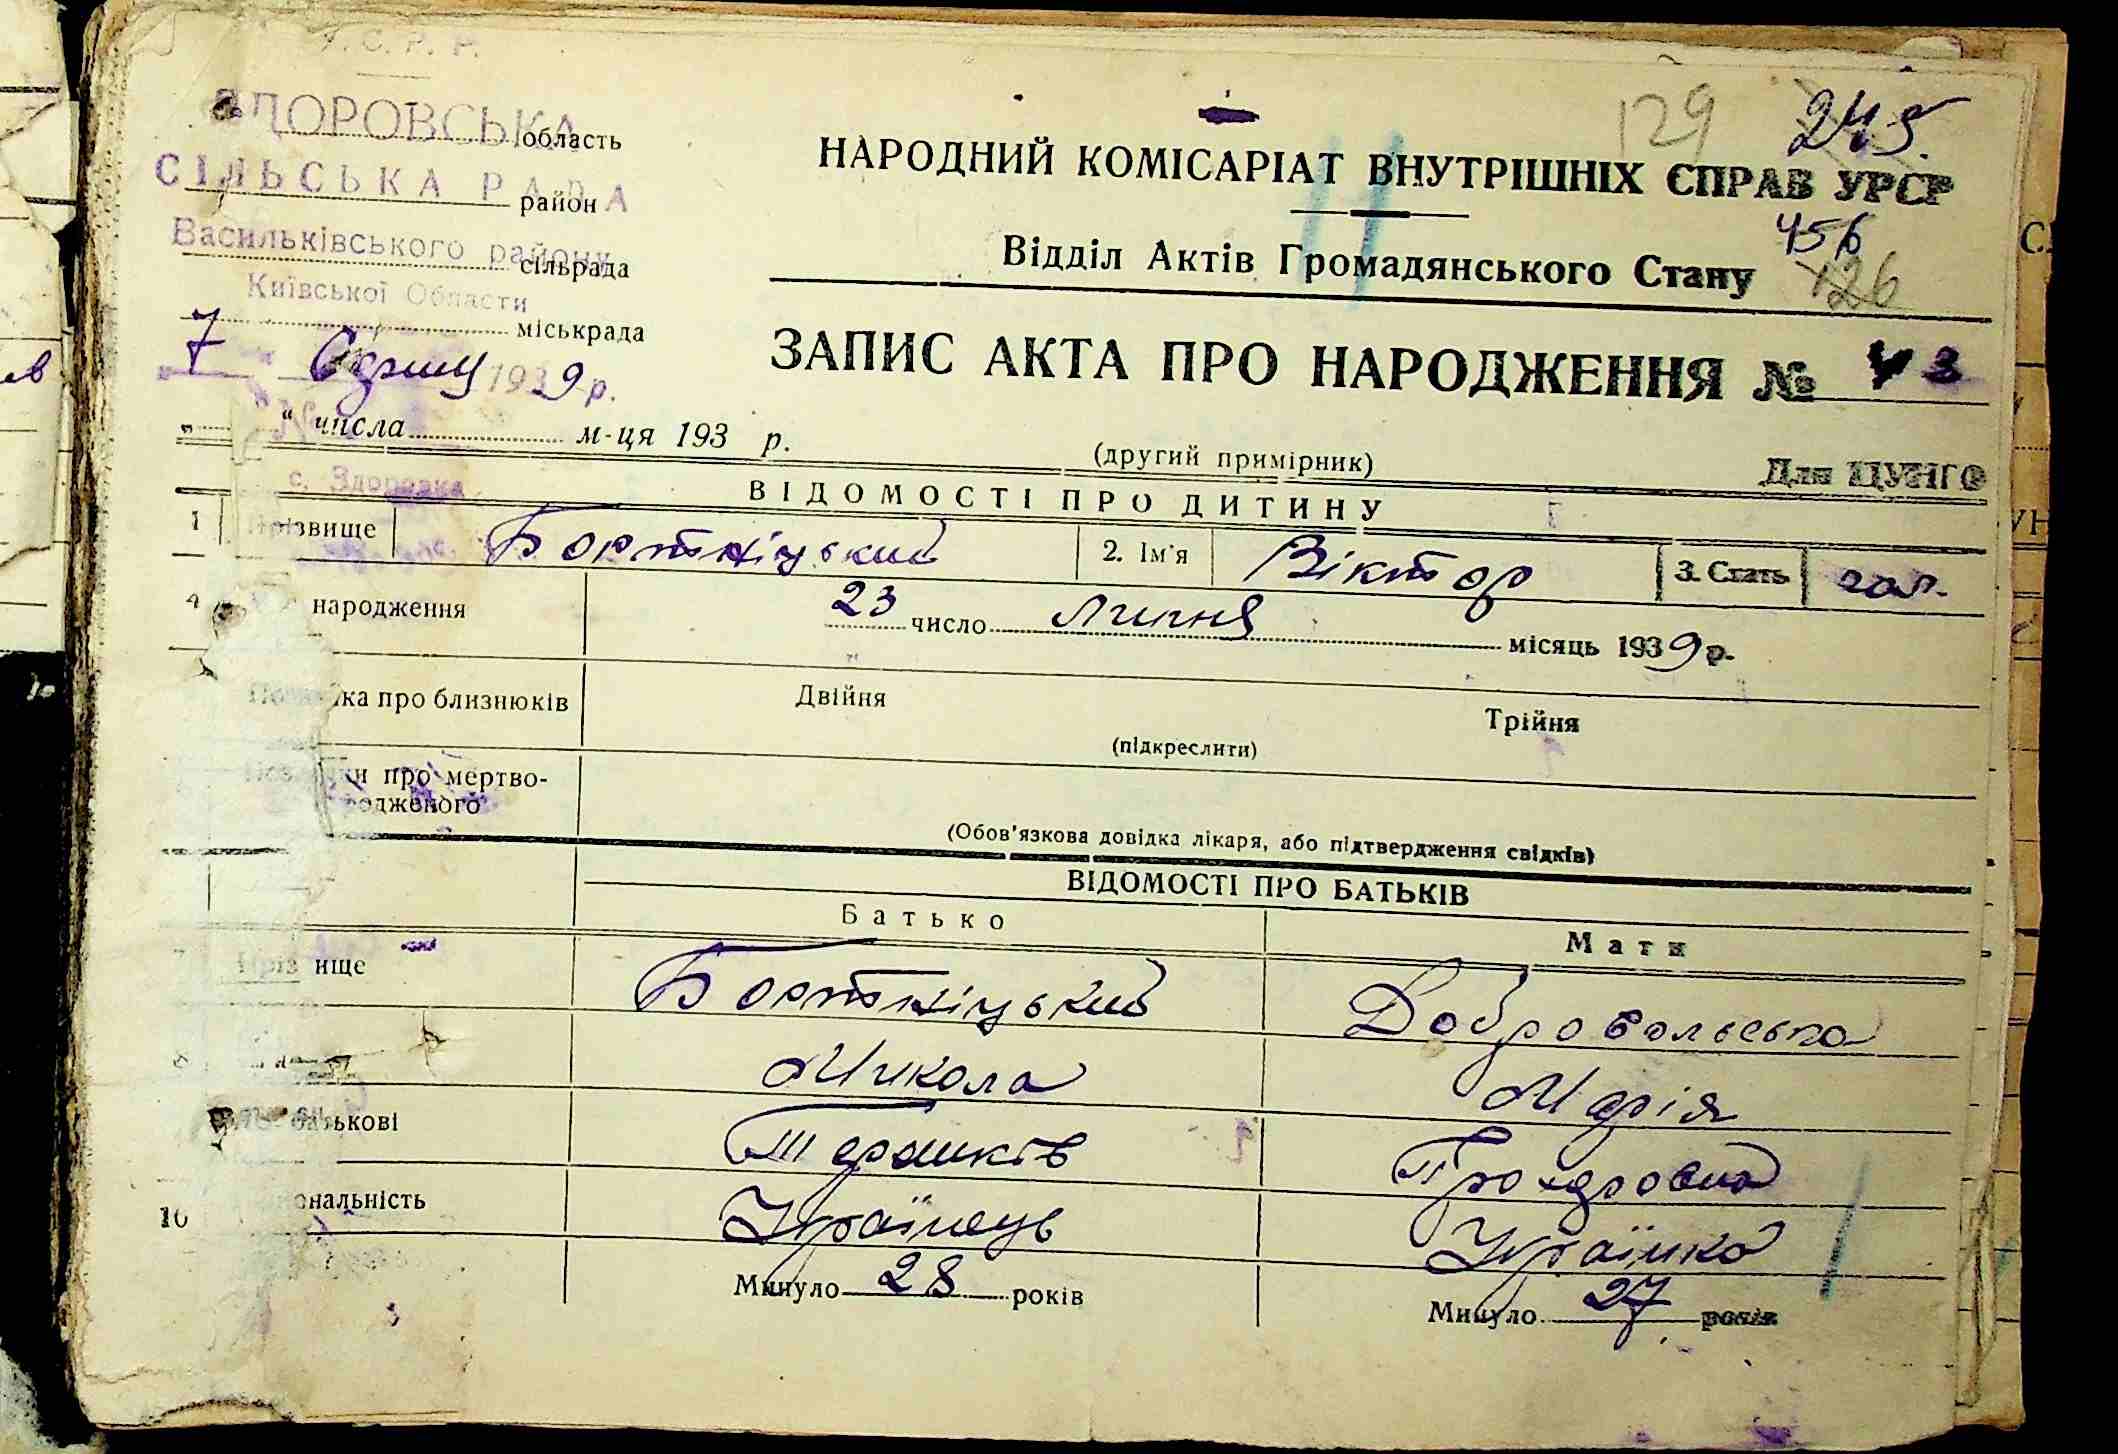 У.С.Р.Р.
ЗДОРОВСЬКА область
СІЛЬСЬКА РАДА район
Васильківського району сільрада
Київської Области міськрада
7 1939 р.
" числа м-ця 193 р.
с. Здоровка
129 245.
НАРОДНИЙ КОМІСАРІАТ ВНУТРІШНІХ СПРАВ УРСР
456
Відділ Актів Громадянського Стану
126
ЗАПИС АКТА ПРО НАРОДЖЕННЯ № 43
(другий примірник) Для ЦУНГО
ВІДОМОСТІ ПРО ДИТИНУ
1 Прізвище Бортніцький 2. Ім'я Віктор 3. Стать чол.
4 народження 23 число липня місяць 1939 р.
Познака про близнюків Двійня Трійня
(підкреслити)
Познаки про мертво-
родженого
(Обов'язкова довідка лікаря, або підтвердження свідків)
ВІДОМОСТІ ПРО БАТЬКІВ
Батько Мати
7 Прізвище Бортніцький Добровольська
8 Микола Марія
батькові Прохоровна
10 національність Українець Українка
Минуло 28 років Минуло 27 років